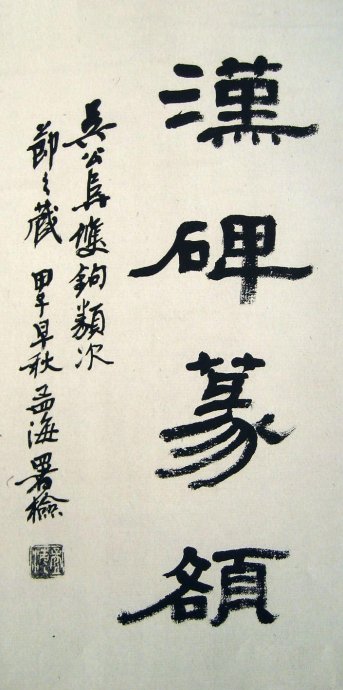 漢碑篆額
吳公阜雙鉤類次
節之藏 甲子早秋孟海署檢